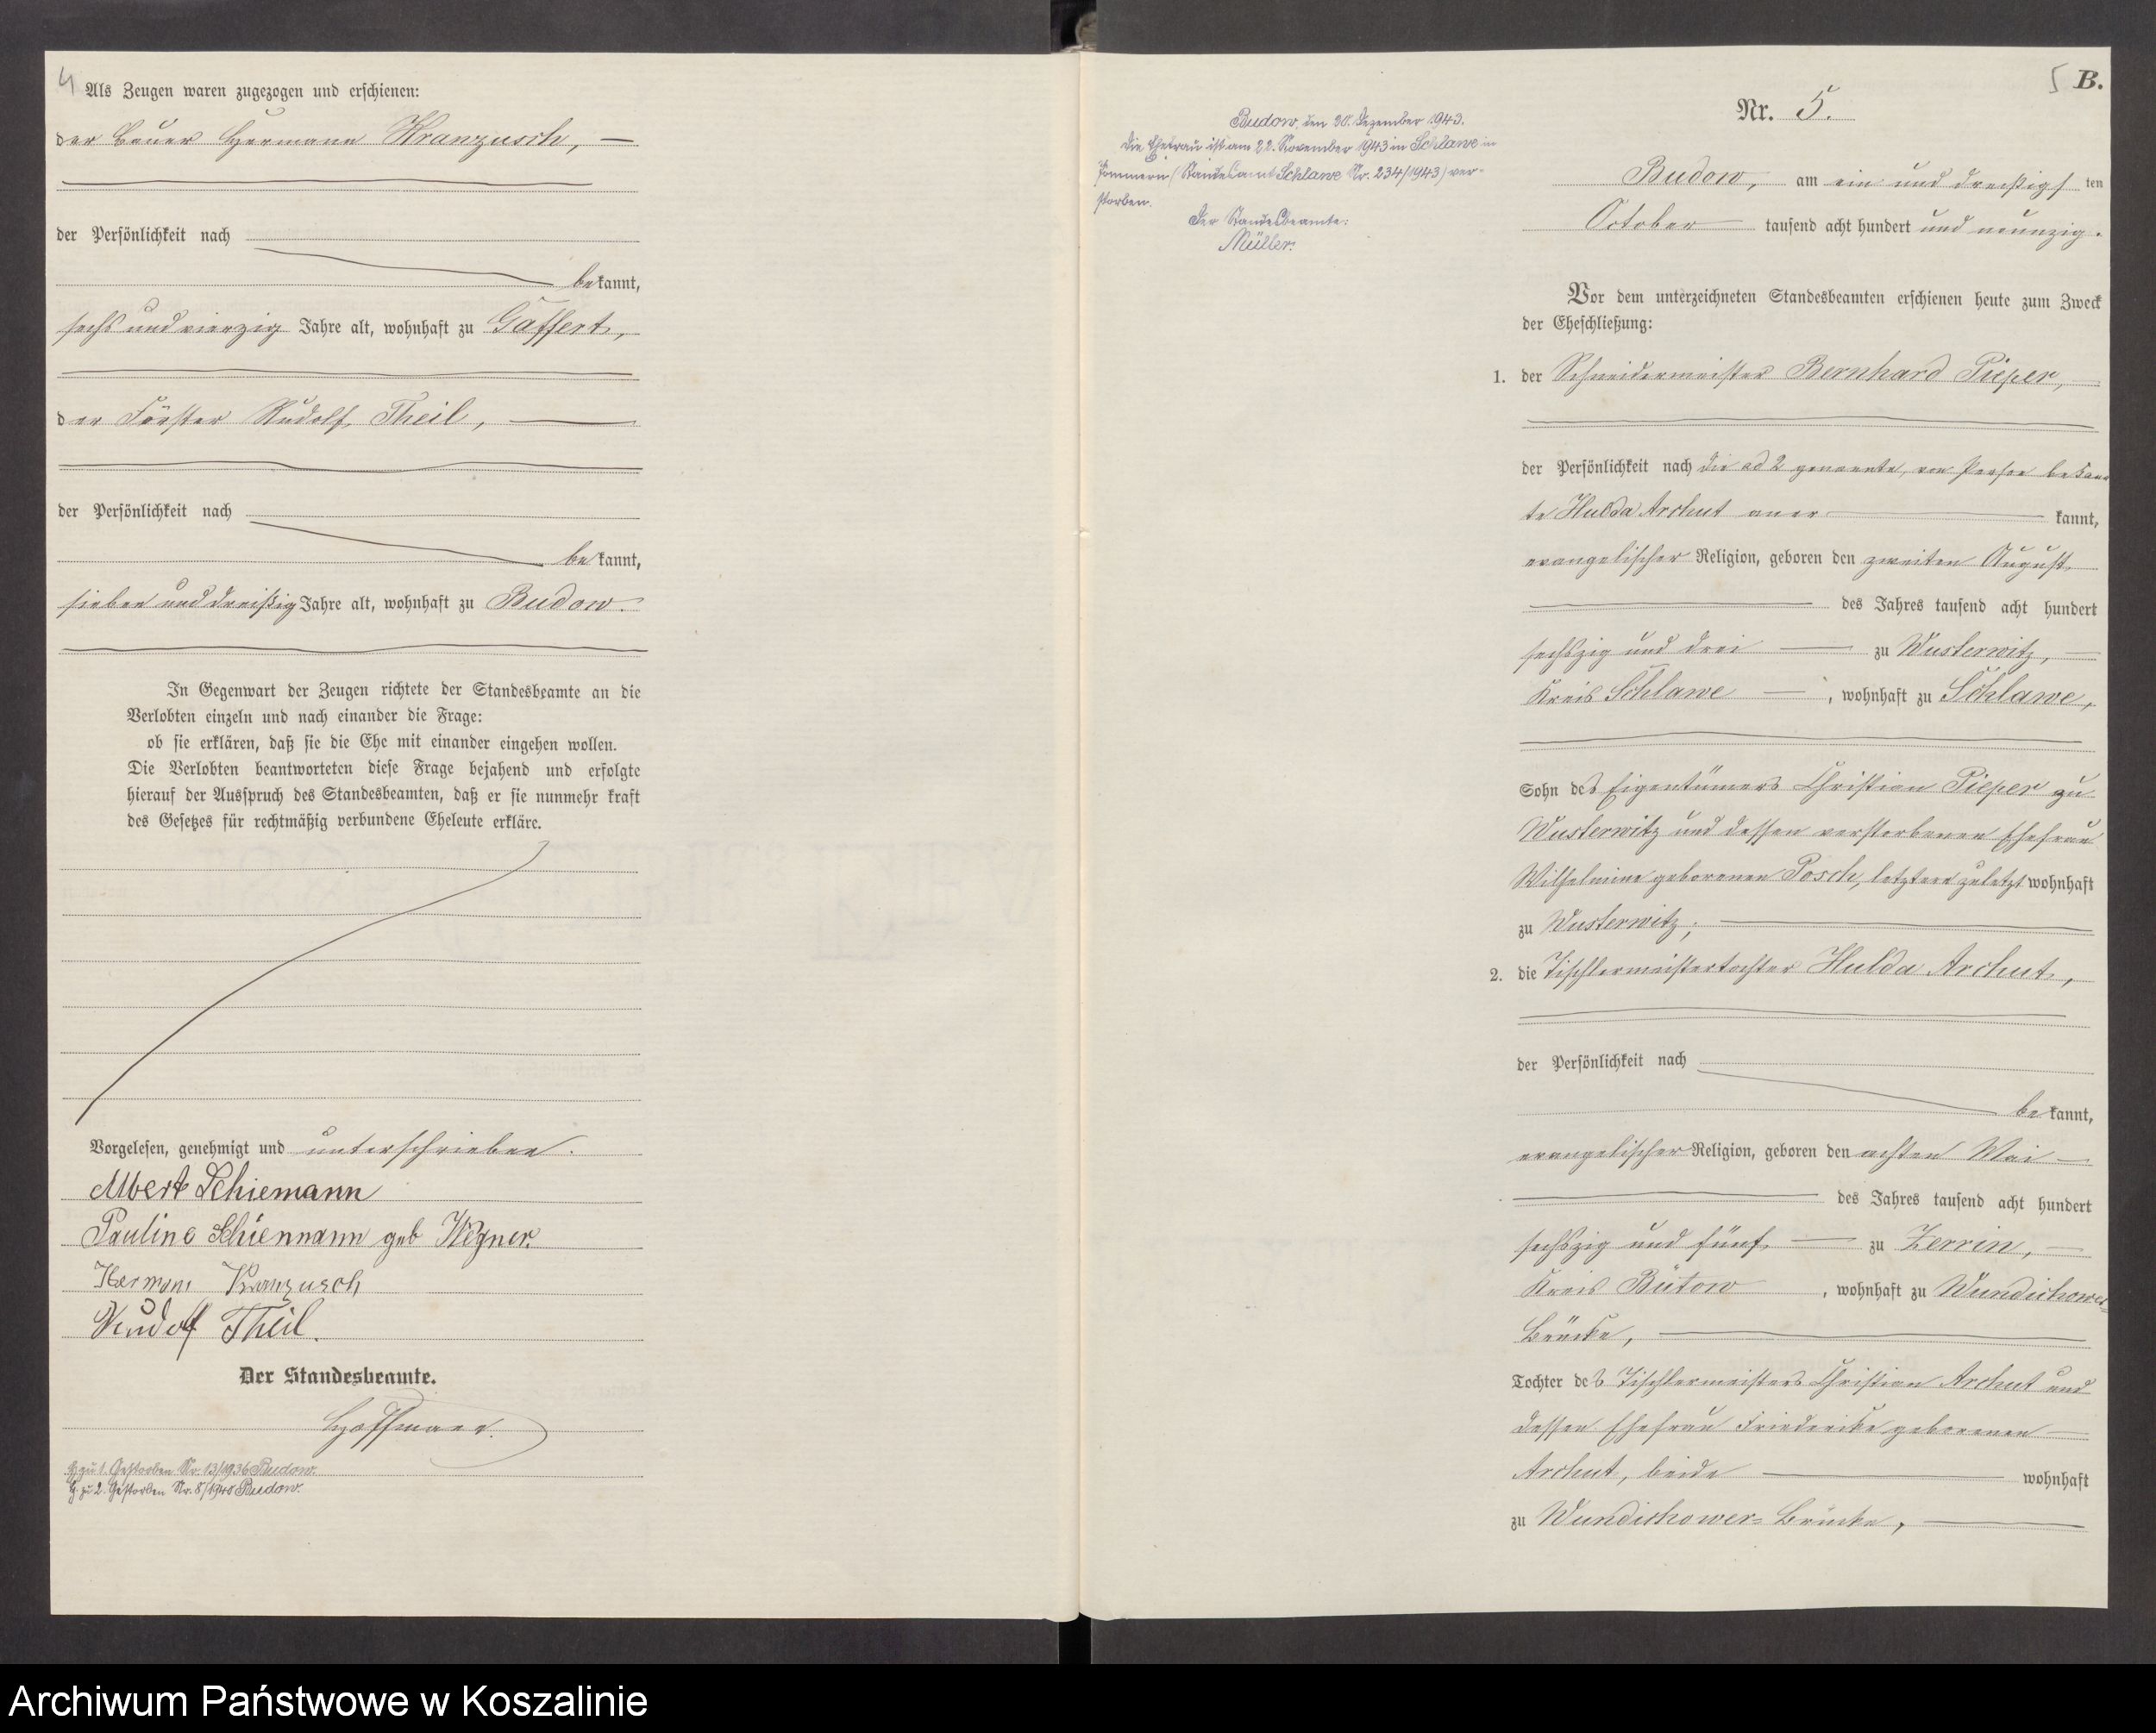 4
Als Zeugen waren zugezogen und erschienen:
der Bauer Hermann Kranzusch, —
der Persönlichkeit nach
bekannt,
sechs und vierzig Jahre alt, wohnhaft zu Gaffert,
der Förster Rudolf Theil, —
der Persönlichkeit nach
bekannt,
sieben und dreißig Jahre alt, wohnhaft zu Budow.
In Gegenwart der Zeugen richtete der Standesbeamte an die
Verlobten einzeln und nach einander die Frage:
ob sie erklären, daß sie die Ehe mit einander eingehen wollen.
Die Verlobten beantworteten diese Frage bejahend und erfolgte
hierauf der Ausspruch des Standesbeamten, daß er sie nunmehr kraft
des Gesetzes für rechtmäßig verbundene Eheleute erkläre.
Vorgelesen, genehmigt und unterschrieben.
Albert Schiemann
Pauline Schiemann geb Wegner.
Hermann Kranzusch
Rudolf Theil.
Der Standesbeamte.
Hoffmann.
G. zu 1. Gestorben Nr. 13/1936 Budow.
G. zu 2. Gestorben Nr. 8/1940 Budow.
5 B.
Nr. 5.
Budow, den 30. Dezember 1943.
Die Ehefrau ist am 22. November 1943 in Schlawe in
Pommern (Standesamt Schlawe Nr. 234/1943) ver-
storben.
Der Standesbeamte:
Müller.
Budow, am ein und dreißigsten
October tausend acht hundert und neunzig.
Vor dem unterzeichneten Standesbeamten erschienen heute zum Zweck
der Eheschließung:
1. der Schneidermeister Bernhard Pieper, —
der Persönlichkeit nach die ad 2 genannte, von Person bekann
te Hulda Archut aner — kannt,
evangelischer Religion, geboren den zweiten August
des Jahres tausend acht hundert
sechszig und drei — zu Wusterwitz, —
Kreis Schlawe —, wohnhaft zu Schlawe,
Sohn des Eigentümers Christian Pieper zu
Wusterwitz und dessen verstorbenen Ehefrau
Wilhelmine geborenen Posch, letztere zuletzt wohnhaft
zu Wusterwitz; —
2. die Tischlermeistertochter Hulda Archut,
der Persönlichkeit nach
bekannt,
evangelischer Religion, geboren den achten Mai —
des Jahres tausend acht hundert
sechszig und fünf — zu Zerrin, —
Kreis Bütow, wohnhaft zu Wundichower-
Brücke, —
Tochter des Tischlermeisters Christian Archut und
dessen Ehefrau Friedericke geborenen —
Archut, beide — wohnhaft
zu Wundichower-Brücke, —
Archiwum Państwowe w Koszalinie